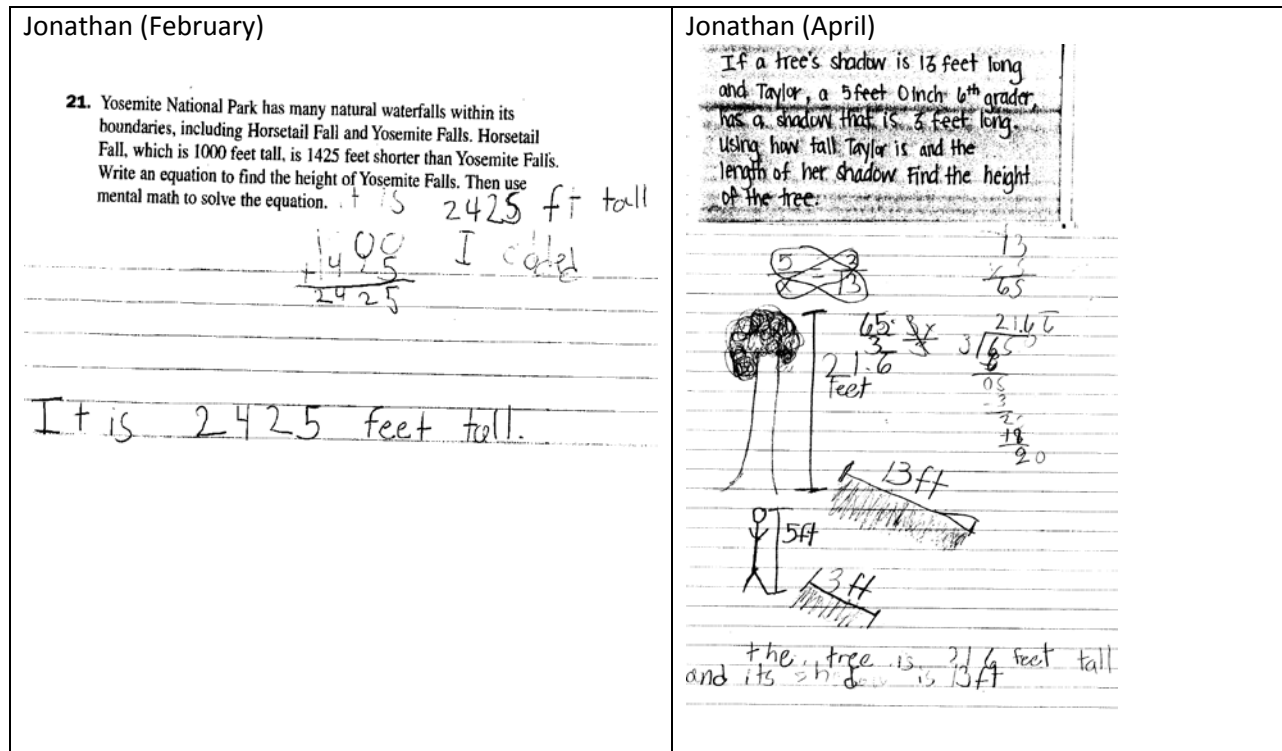 Jonathan (February)
21. Yosemite National Park has many natural waterfalls within its
boundaries, including Horsetail Fall and Yosemite Falls. Horsetail
Fall, which is 1000 feet tall, is 1425 feet shorter than Yosemite Falls.
Write an equation to find the height of Yosemite Falls. Then use
mental math to solve the equation.
2425 ft tall
I
+1425
2425
It is 2425 feet tall.
Jonathan (April)
If a tree's shadow is 13 feet long
and Taylor, a 5feet 0inch 6th grader,
has a shadow that is 3 feet long.
Using how tall Taylor is and the
length of her shadow Find the height
of the tree.
13
65
5 3
x = 13
65 3x
3 3
21.6
feet
21.6
3 65
05
-3
2
18
20
13ft
5ft
3ft
the tree is 21.6 feet tall
and its is 13ft